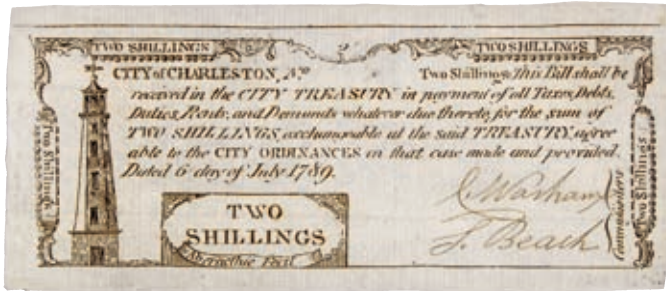 TWO SHILLINGS
TWO SHILLINGS
CITY of CHARLESTON, No Two Shillings. This Bill shall be
received in the CITY TREASURY in payment of all Taxes, Debts,
Duties, Rents, and Demands whatever due thereto, for the sum of
TWO SHILLINGS, exchangeable at the said TREASURY, agree
able to the CITY ORDINANCES in that case made and provided.
Dated 6 day of July 1789.
Two Shillings
J. Warham
T. Beach
Commissioners
Two Shillings
TWO
SHILLINGS
Abernethie Fecit